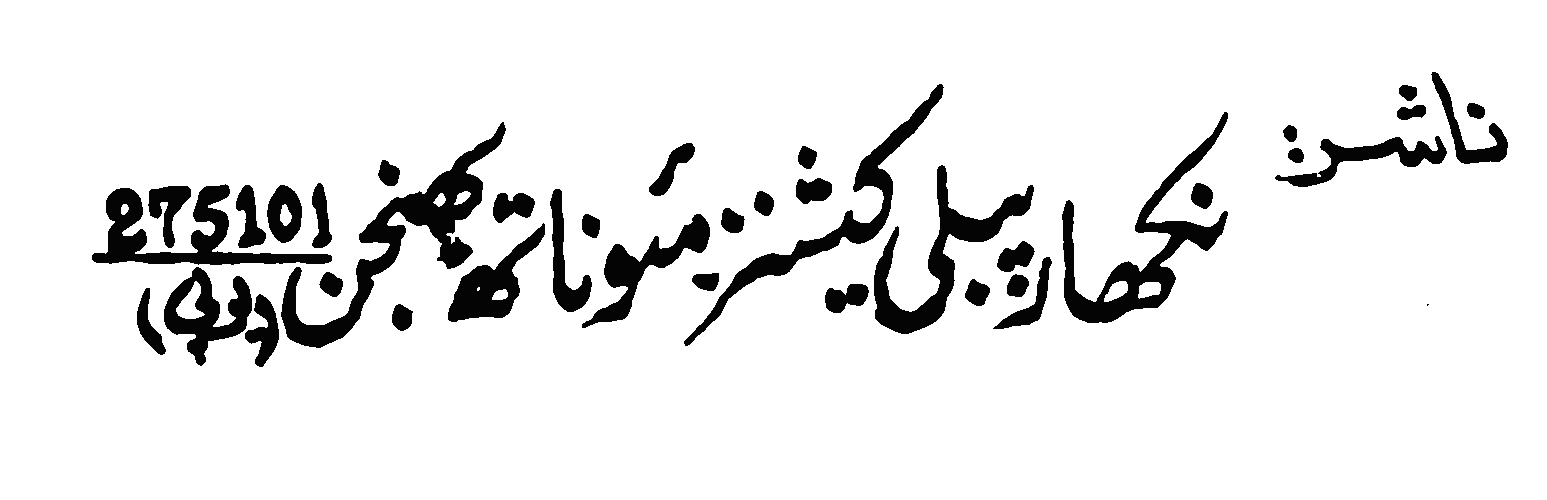 ناشر:
نکھار پبلی کیشنز مئوناتھ بھنجن 275101 (یوپی)